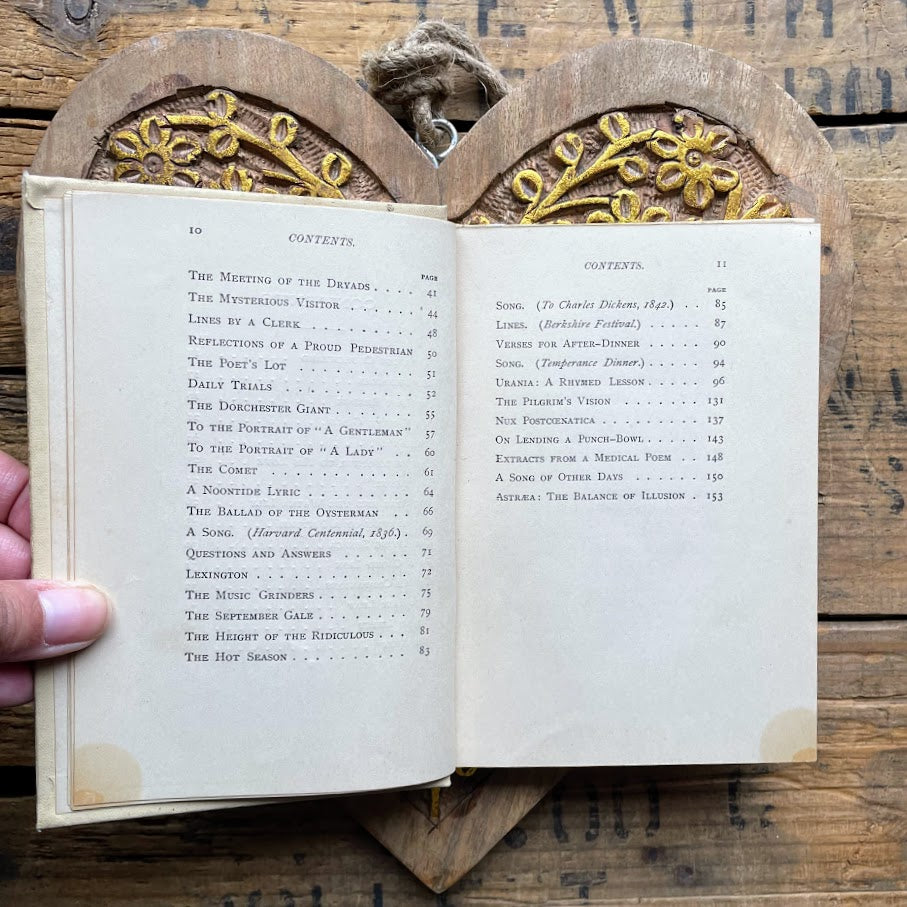 10
CONTENTS.
PAGE
THE MEETING OF THE DRYADS . . . . 41
THE MYSTERIOUS VISITOR . . . . . . 44
LINES BY A CLERK . . . . . . . . . 48
REFLECTIONS OF A PROUD PEDESTRIAN 50
THE POET'S LOT . . . . . . . . . . 51
DAILY TRIALS . . . . . . . . . . . 52
THE DORCHESTER GIANT . . . . . . . 55
TO THE PORTRAIT OF "A GENTLEMAN" 57
TO THE PORTRAIT OF "A LADY" . . . 60
THE COMET . . . . . . . . . . . . 61
A NOONTIDE LYRIC . . . . . . . . . 64
THE BALLAD OF THE OYSTERMAN . . 66
A SONG. (Harvard Centennial, 1836.) . 69
QUESTIONS AND ANSWERS . . . . . . 71
LEXINGTON . . . . . . . . . . . . . 72
THE MUSIC GRINDERS . . . . . . . . 75
THE SEPTEMBER GALE . . . . . . . . 79
THE HEIGHT OF THE RIDICULOUS . . . 81
THE HOT SEASON . . . . . . . . . . 83
CONTENTS. 11
PAGE
SONG. (To Charles Dickens, 1842.) . . 85
LINES. (Berkshire Festival.) . . . . . 87
VERSES FOR AFTER-DINNER . . . . . 90
SONG. (Temperance Dinner.) . . . . . 94
URANIA: A RHYMED LESSON . . . . . 96
THE PILGRIM'S VISION . . . . . . . 131
NUX POSTCŒNATICA . . . . . . . . . 137
ON LENDING A PUNCH-BOWL . . . . . 143
EXTRACTS FROM A MEDICAL POEM . . 148
A SONG OF OTHER DAYS . . . . . . 150
ASTRÆA: THE BALANCE OF ILLUSION . 153